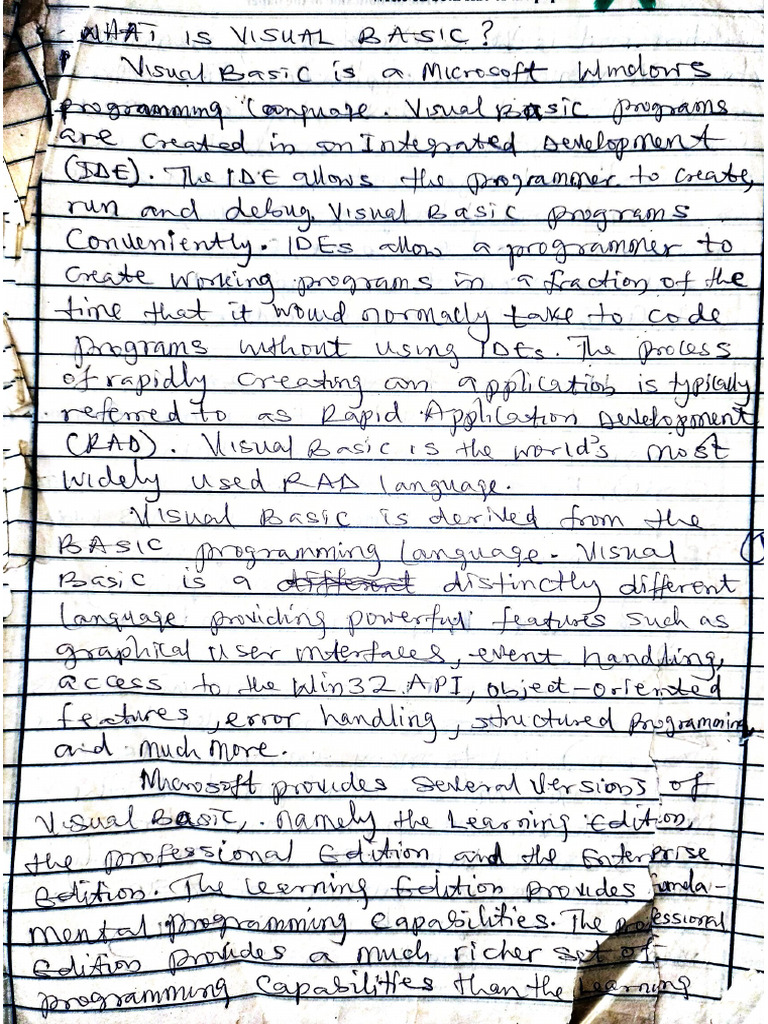 WHAT IS VISUAL BASIC?
Visual Basic is a Microsoft Windows
programming language. Visual Basic programs
are created in an Integrated Development
(IDE). The IDE allows the programmer to create,
run and debug Visual Basic programs
Conveniently. IDEs allow a programmer to
create working programs in a fraction of the
time that it would normally take to code
programs without using IDEs. The process
of rapidly creating an application is typically
referred to as Rapid Application Development
(RAD). Visual Basic is the world's most
widely used RAD language.
Visual Basic is derived from the
BASIC programming language. Visual
Basic is a different distinctly different
language providing powerful features such as
graphical user interfaces, event handling,
access to the Win32 API, object-oriented
features, error handling, structured programming,
and much more.
Microsoft provides several versions of
Visual Basic, namely the Learning Edition,
the professional Edition and the Enterprise
Edition. The Learning Edition provides funda-
mental programming capabilities. The professional
Edition provides a much richer set of
programming capabilities than the Learning